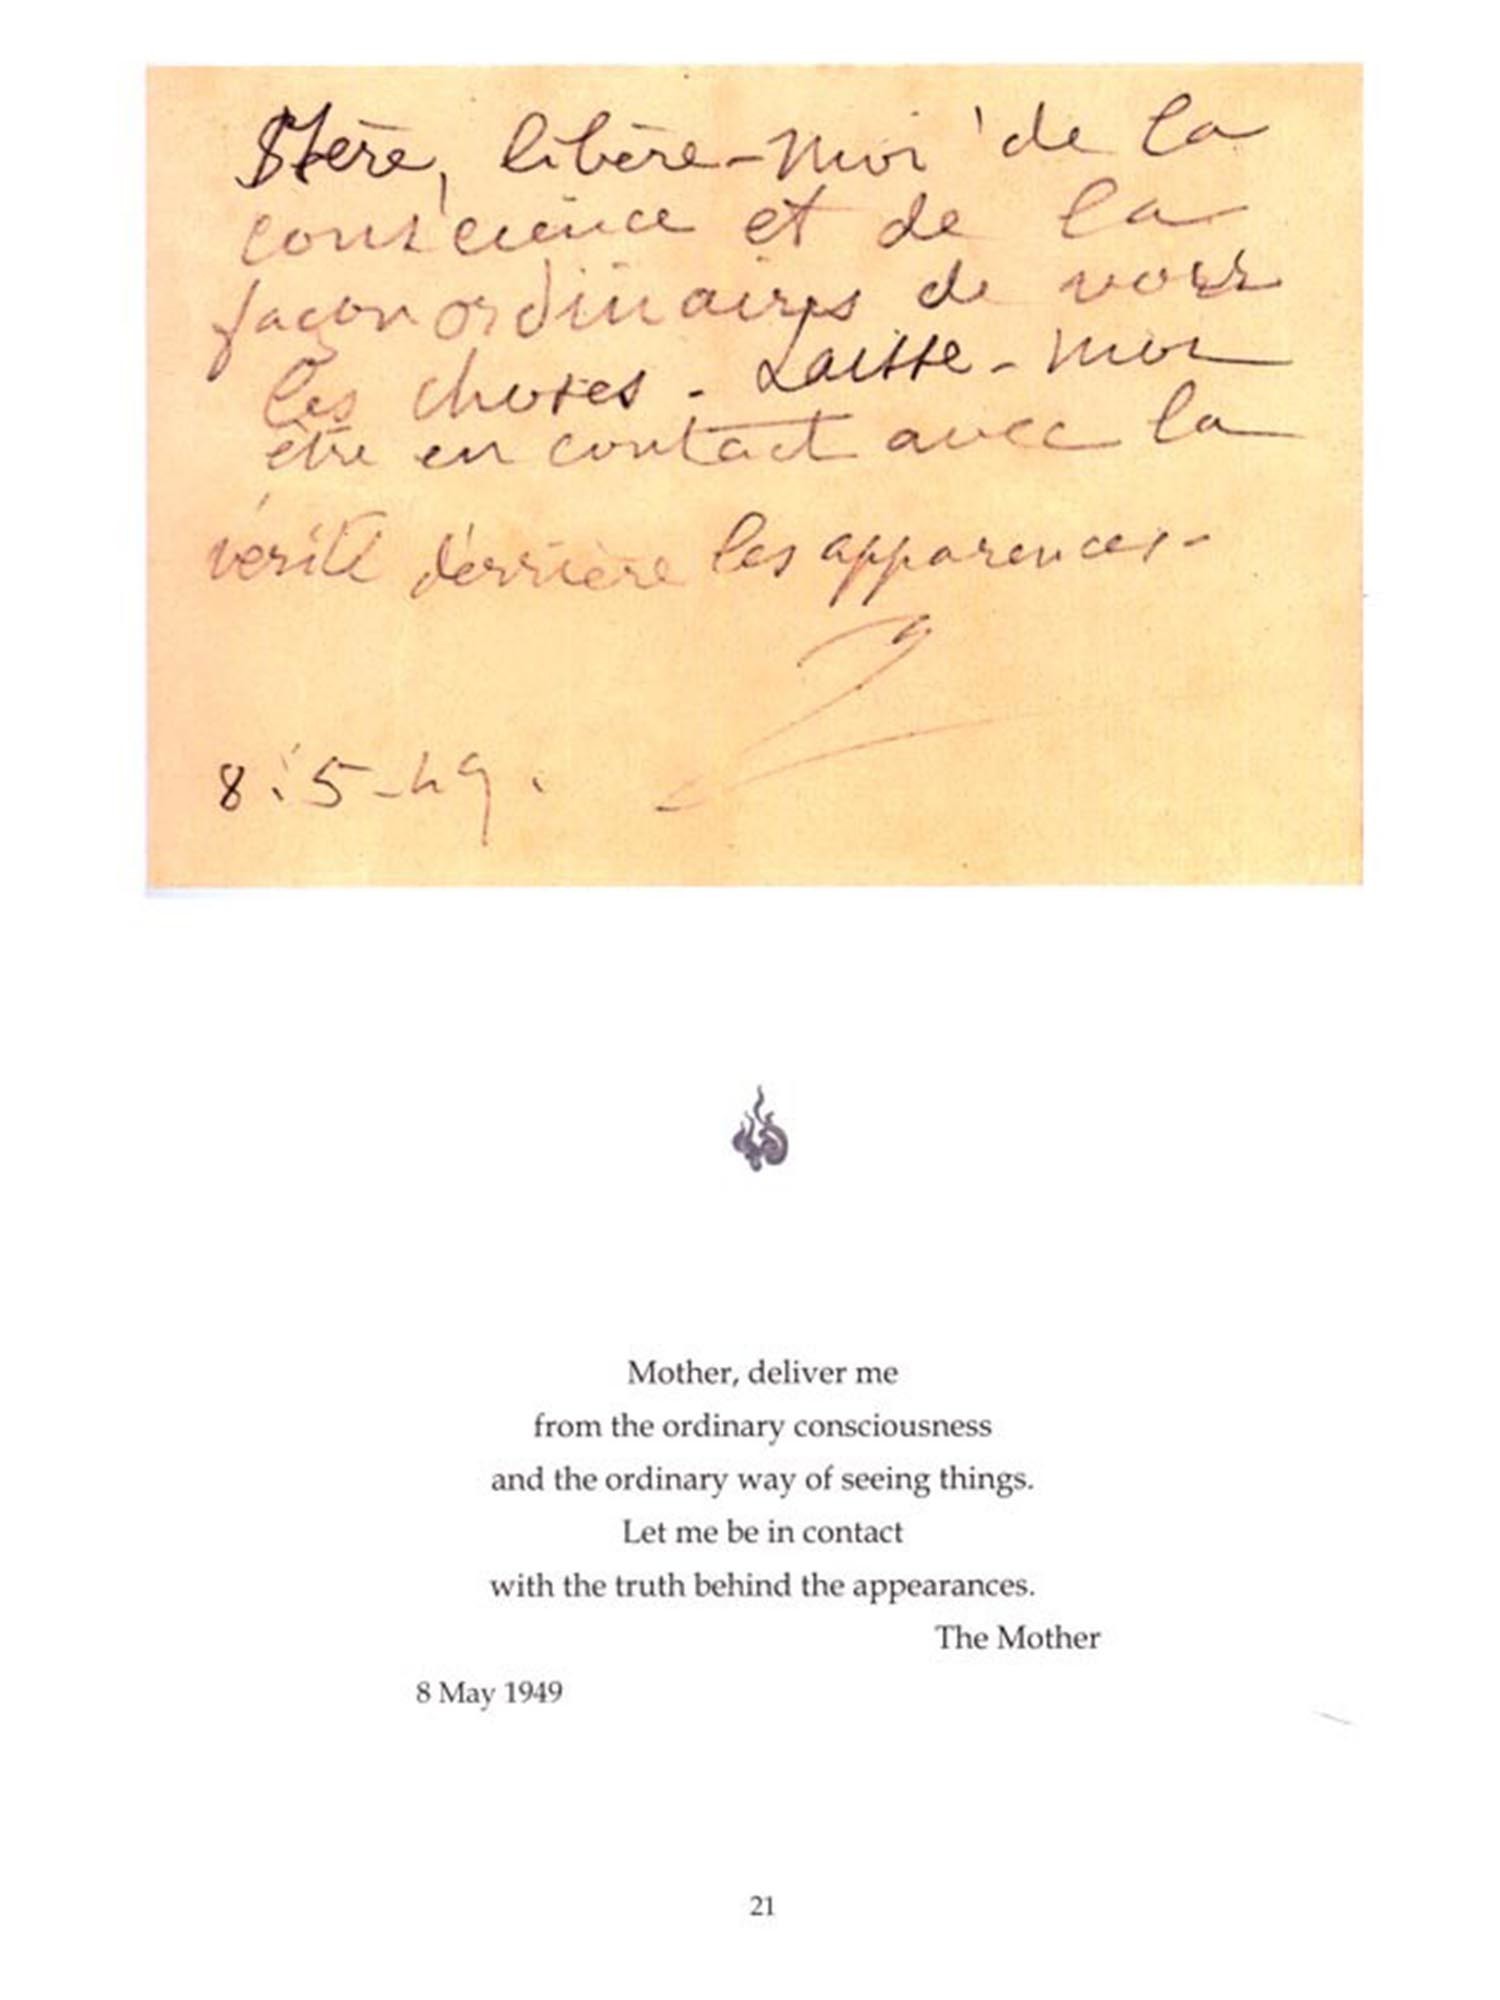 Mère, libère-moi de la
conscience et de la
façon ordinaires de voir
les choses. Laisse-moi
être en contact avec la
vérité derrière les apparences.
8-5-49.
Mother, deliver me
from the ordinary consciousness
and the ordinary way of seeing things.
Let me be in contact
with the truth behind the appearances.
The Mother
8 May 1949
21